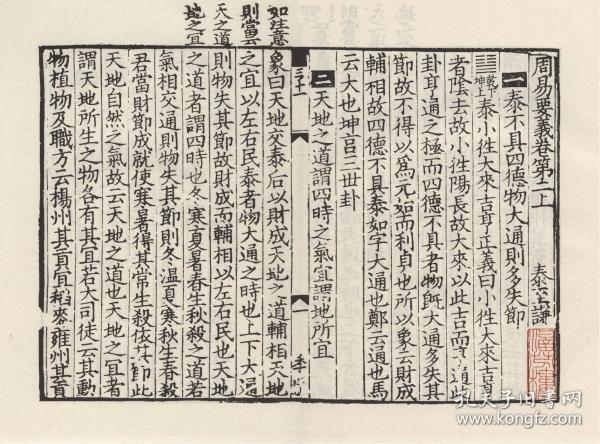 周易要義卷第二上
泰至謙
一 泰不具四德物大通則多失節
乾下坤上 泰小徃大來吉亨正義曰小徃大來吉亨
者陰去故小徃陽長故大來以此吉而亨通此
卦亨通之極而四德不具者物旣大通多失其
節故不得以爲元始而利貞也所以象云財成
輔相故四德不具泰如字大通也鄭云通也馬
云大也坤宮三世卦
二 天地之道謂四時之氣宜謂地所宜
三十一
一
如注意
則當云
天之道
地之宜
象曰天地交泰后以財成天地之道輔相天地
之宜以左右民泰者物大通之時也上下大通
則物失其節故財成而輔相以左右民也天地
之道者謂四時也冬寒夏暑春生秋殺之道若
氣相交通則物失其節則冬温夏寒秋生春殺
君當財節成就使寒暑得其常生殺依其節此
天地自然之氣故云天地之道也天地之宜者
謂天地所生之物各有其宜若大司徒云其動
物植物及職方云楊州其貢宜稻麥雍州其貢
孔夫子旧书网
kongfz.com